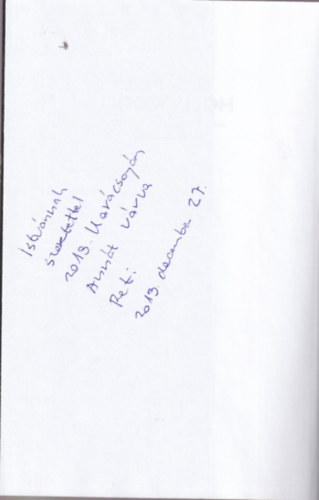 Istvánnak
szeretettel
2019. Karácsonyán
Annát várva
Peti
2019. december 27.